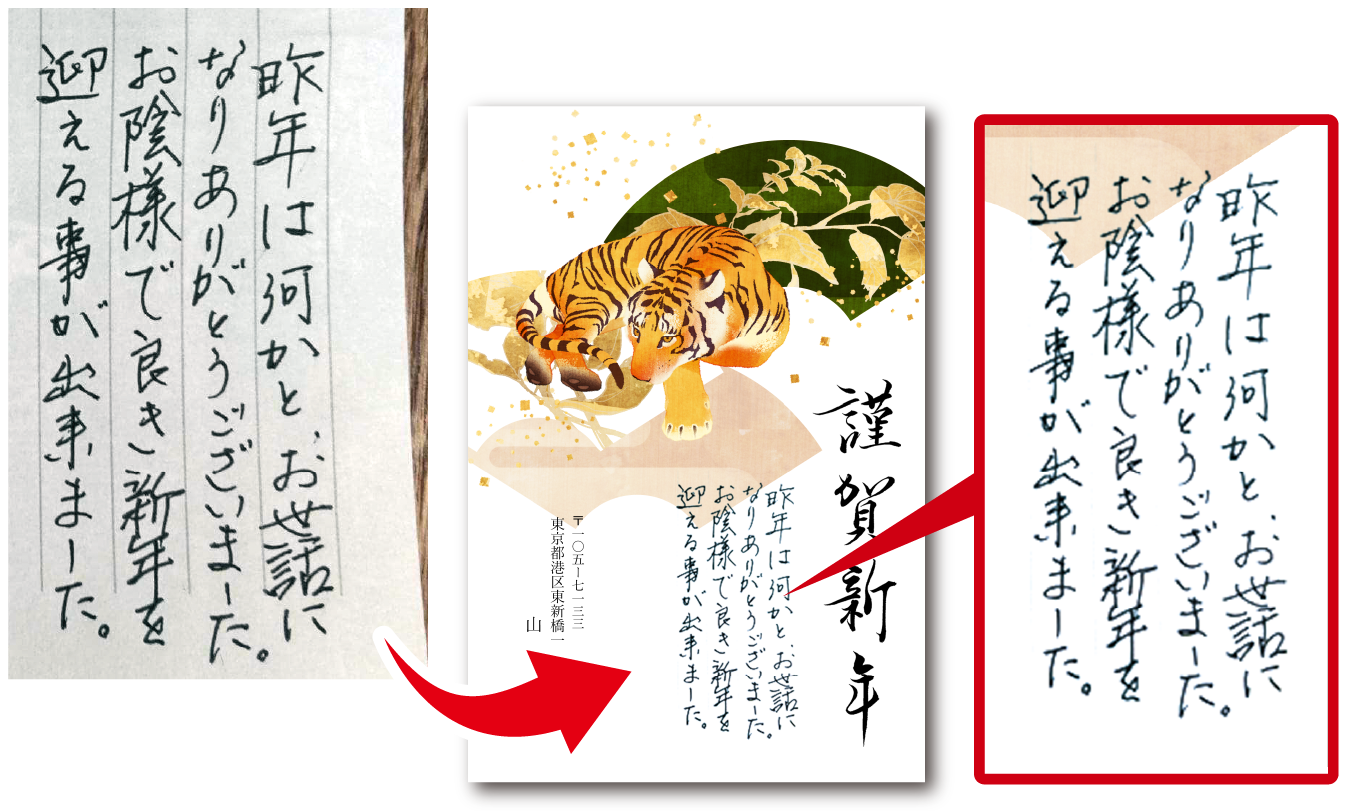 昨年は何かと、お世話に
なりありがとうございました。
お陰様で良き新年を
迎える事が出来ました。
謹賀新年
昨年は何かと、お世話に
なりありがとうございました。
お陰様で良き新年を
迎える事が出来ました。
〒一〇五ー七一三三
東京都港区東新橋一
山
昨年は何かと、お世話に
なりありがとうございました。
お陰様で良き新年を
迎える事が出来ました。